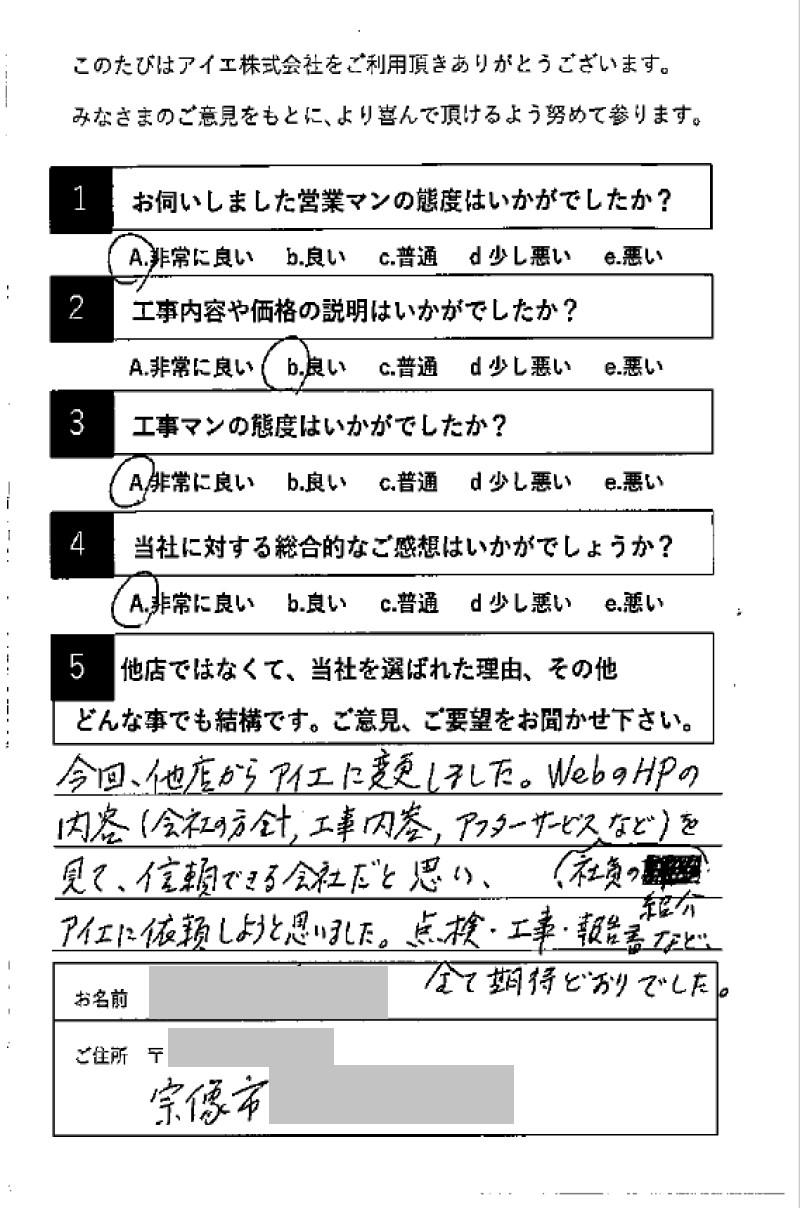 このたびはアイエ株式会社をご利用頂きありがとうございます。
みなさまのご意見をもとに、より喜んで頂けるよう努めて参ります。
1 お伺いしました営業マンの態度はいかがでしたか？
A.非常に良い b.良い c.普通 d 少し悪い e.悪い
2 工事内容や価格の説明はいかがでしたか？
A.非常に良い b.良い c.普通 d 少し悪い e.悪い
3 工事マンの態度はいかがでしたか？
A.非常に良い b.良い c.普通 d 少し悪い e.悪い
4 当社に対する総合的なご感想はいかがでしょうか？
A.非常に良い b.良い c.普通 d 少し悪い e.悪い
5 他店ではなくて、当社を選ばれた理由、その他
どんな事でも結構です。ご意見、ご要望をお聞かせ下さい。
今回、他店からアイエに変更しました。WebのHPの
内容（会社の方針，工事内容，アフターサービスなど）を
見て、信頼できる会社だと思い、（、社員の
紹介
アイエに依頼しようと思いました。点検・工事・報告書など、
全て期待どおりでした。
お名前
ご住所 〒
宗像市